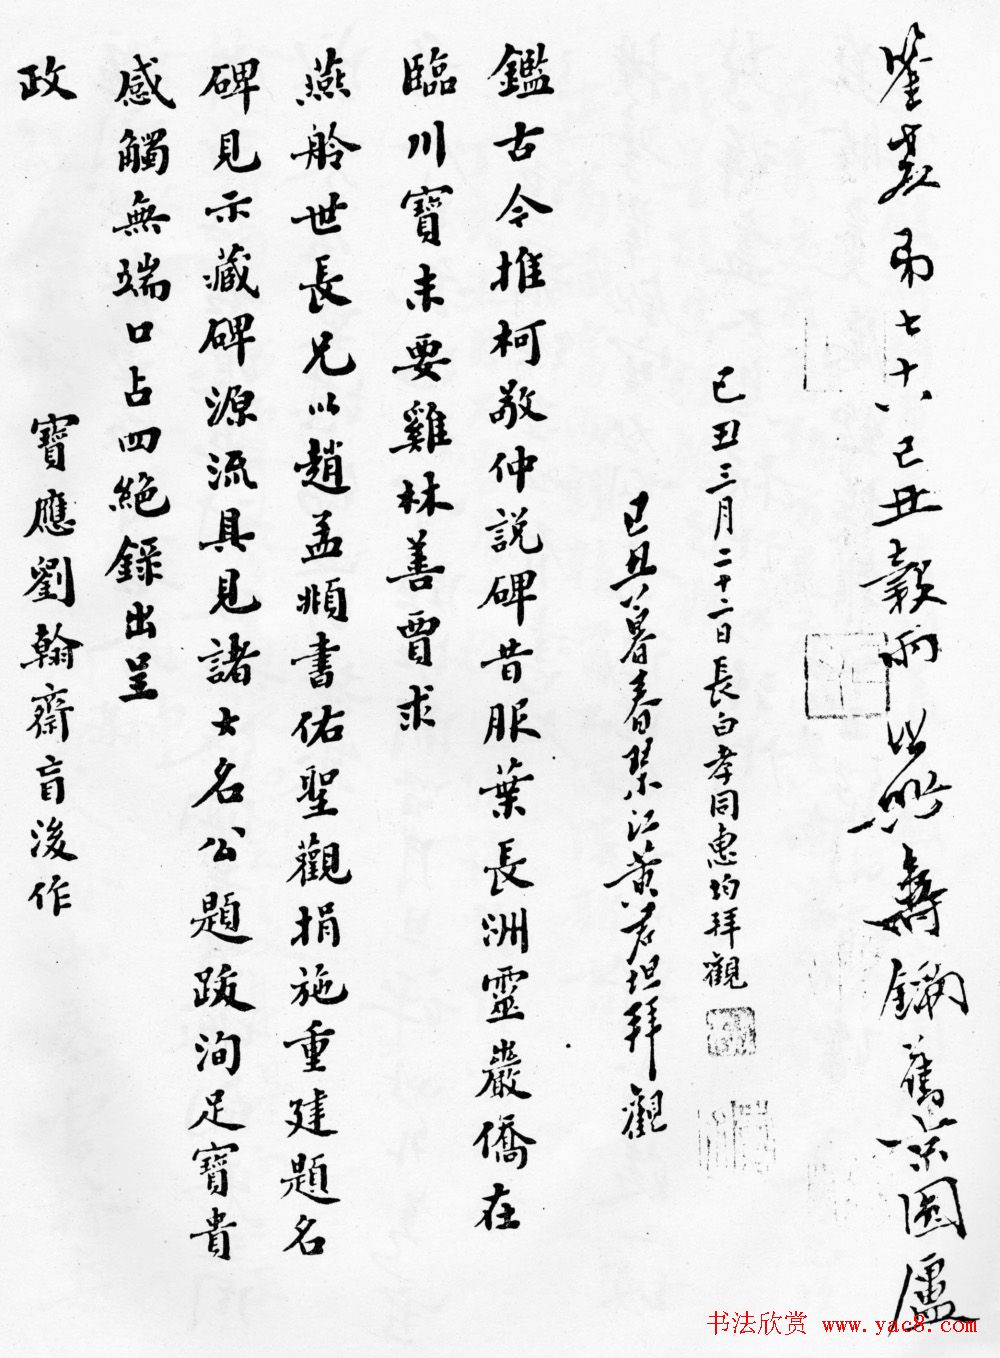 己丑三月二十二日長白孝同惠均拜觀
己丑暮春琴江黃君坦拜觀
鑑古今推柯敬仲説碑昔服葉長洲靈巖僑在
臨川寶未要雞林善賈求
燕舲世長兄以趙孟頫書佑聖觀捐施重建題名
碑見示藏碑源流具見諸大名公題跋洵足寶貴
感觸無端口占四絕錄出呈
政
寶應劉翰齋盲後作
书法欣赏 www.yac8.com